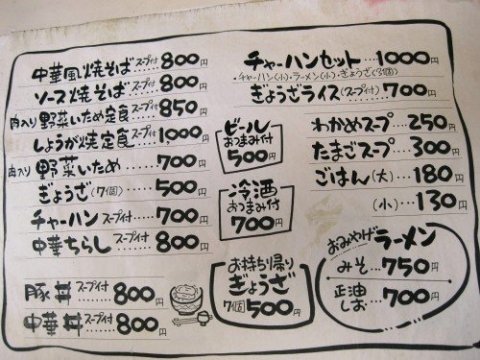 中華風焼そば スープ付 800円
ソース焼そば スープ付 800円
肉入り野菜いため定食 スープ付 850
しょうが焼定食 スープ付 1,000
肉入り野菜いため … 700円
ぎょうざ(7個) … 500円
チャーハン スープ付 … 700円
中華ちらし スープ付 800円
豚丼 スープ付 800円
中華丼 スープ付 800円
ビール
おつまみ付
500円
冷酒
おつまみ付
700円
お持ち帰り
ぎょうざ
7個 500円
チャーハンセット … 1000円
・チャーハン(小)・ラーメン(小)・ぎょうざ(3個)
ぎょうざライス(スープ付) 700円
わかめスープ … 250円
たまごスープ … 300円
ごはん(大) … 180円
(小) … 130円
おみやげラーメン
みそ … 750円
正油
しお … 700円